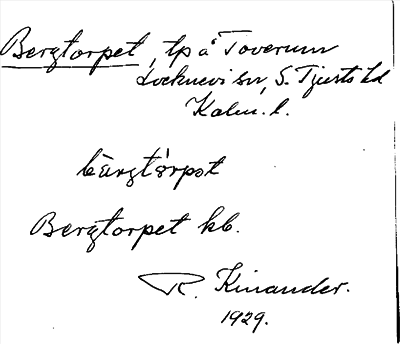 Bergtorpet, tp å Toverum
Locknevi sn, S. Tjusts hd
Kalm. l.
bärgtòrpət
Bergtorpet kb.
R. Kinander.
1929.